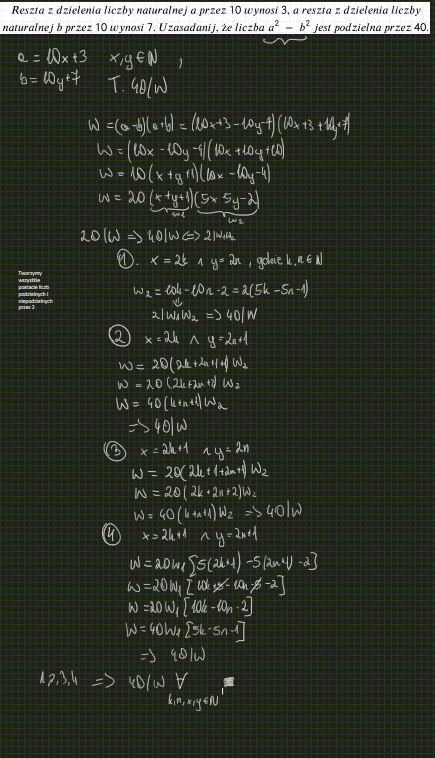 Reszta z dzielenia liczby naturalnej a przez 10 wynosi 3, a reszta z dzielenia liczby
naturalnej b przez 10 wynosi 7. Uzasadnij, że liczba a² − b² jest podzielna przez 40.
a = 10x+3 x,y∈N ,
b = 10y+7 T. 40|W
W = (a-b)(a+b) = (10x+3-10y-7)(10x+3+10y+7)
W = (10x-10y-4)(10x+10y+10)
W = 10(x+y+1)(10x-10y-4)
W = 20(x+y+1)(5x-5y-2)
w₁ w₂
20|W => 40|W <=> 2|w₁w₂
Tworzymy
wszystkie
postacie liczb
podzielnych i
niepodzielnych
przez 2
① . x = 2k ∧ y = 2n , gdzie k,n∈N
w₂ = 10k-10n-2 = 2(5k-5n-1)
⇓
2|w₁w₂ => 40|W
② x=2k ∧ y=2n+1
W = 20(2k+2n+1+1)w₂
W = 20(2k+2n+2)w₂
W = 40(k+n+1)w₂
=> 40|W
③ x=2k+1 ∧ y=2n
W = 20(2k+1+2n+1)w₂
W = 20(2k+2n+2)w₂
W = 40(k+n+1)w₂ => 40|W
④ x=2k+1 ∧ y=2n+1
W = 20w₁[5(2k+1)-5(2n+1)-2]
W = 20w₁[10k+5-10n-5-2]
W = 20w₁[10k-10n-2]
W = 40w₁[5k-5n-1]
=> 40|W
1,2,3,4 => 40|W ∀
k,n,x,y∈N ,